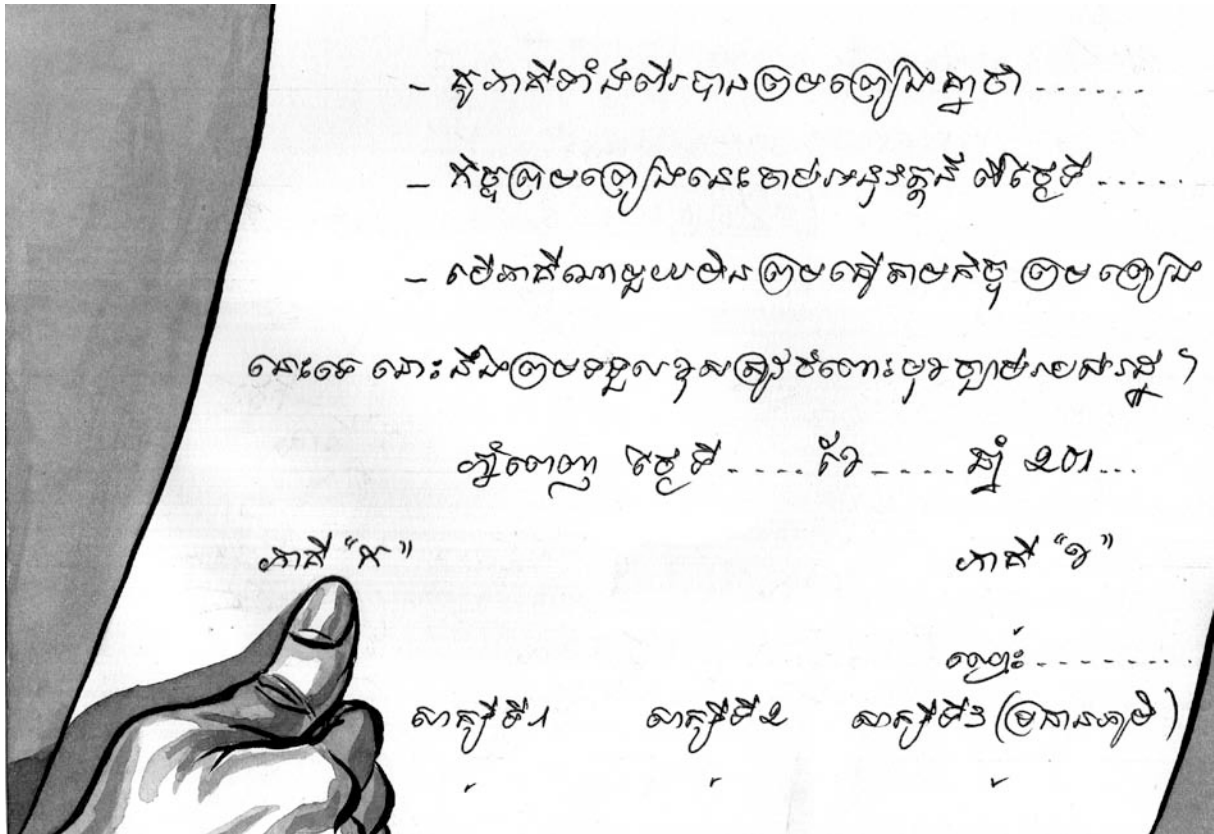 - គូភាគីទាំងពីរបានព្រមព្រៀងគ្នាថា.......
- កិច្ចព្រមព្រៀងនេះចាប់អនុវត្តន៍ ពីថ្ងៃទី.....
- បើភាគីណាមួយមិនព្រមធ្វើតាមកិច្ច ព្រមព្រៀង
នេះទេ នោះនឹងព្រមទទួលខុសត្រូវចំពោះមុខច្បាប់របស់រដ្ឋ ។
ភ្នំពេញ ថ្ងៃទី.....ខែ.....ឆ្នាំ ២០១...
ភាគី "ក" ភាគី "ខ"
ឈ្មោះ........
សាក្សីទី១ សាក្សីទី២ សាក្សីទី៣ (ប្រធានភូមិ)